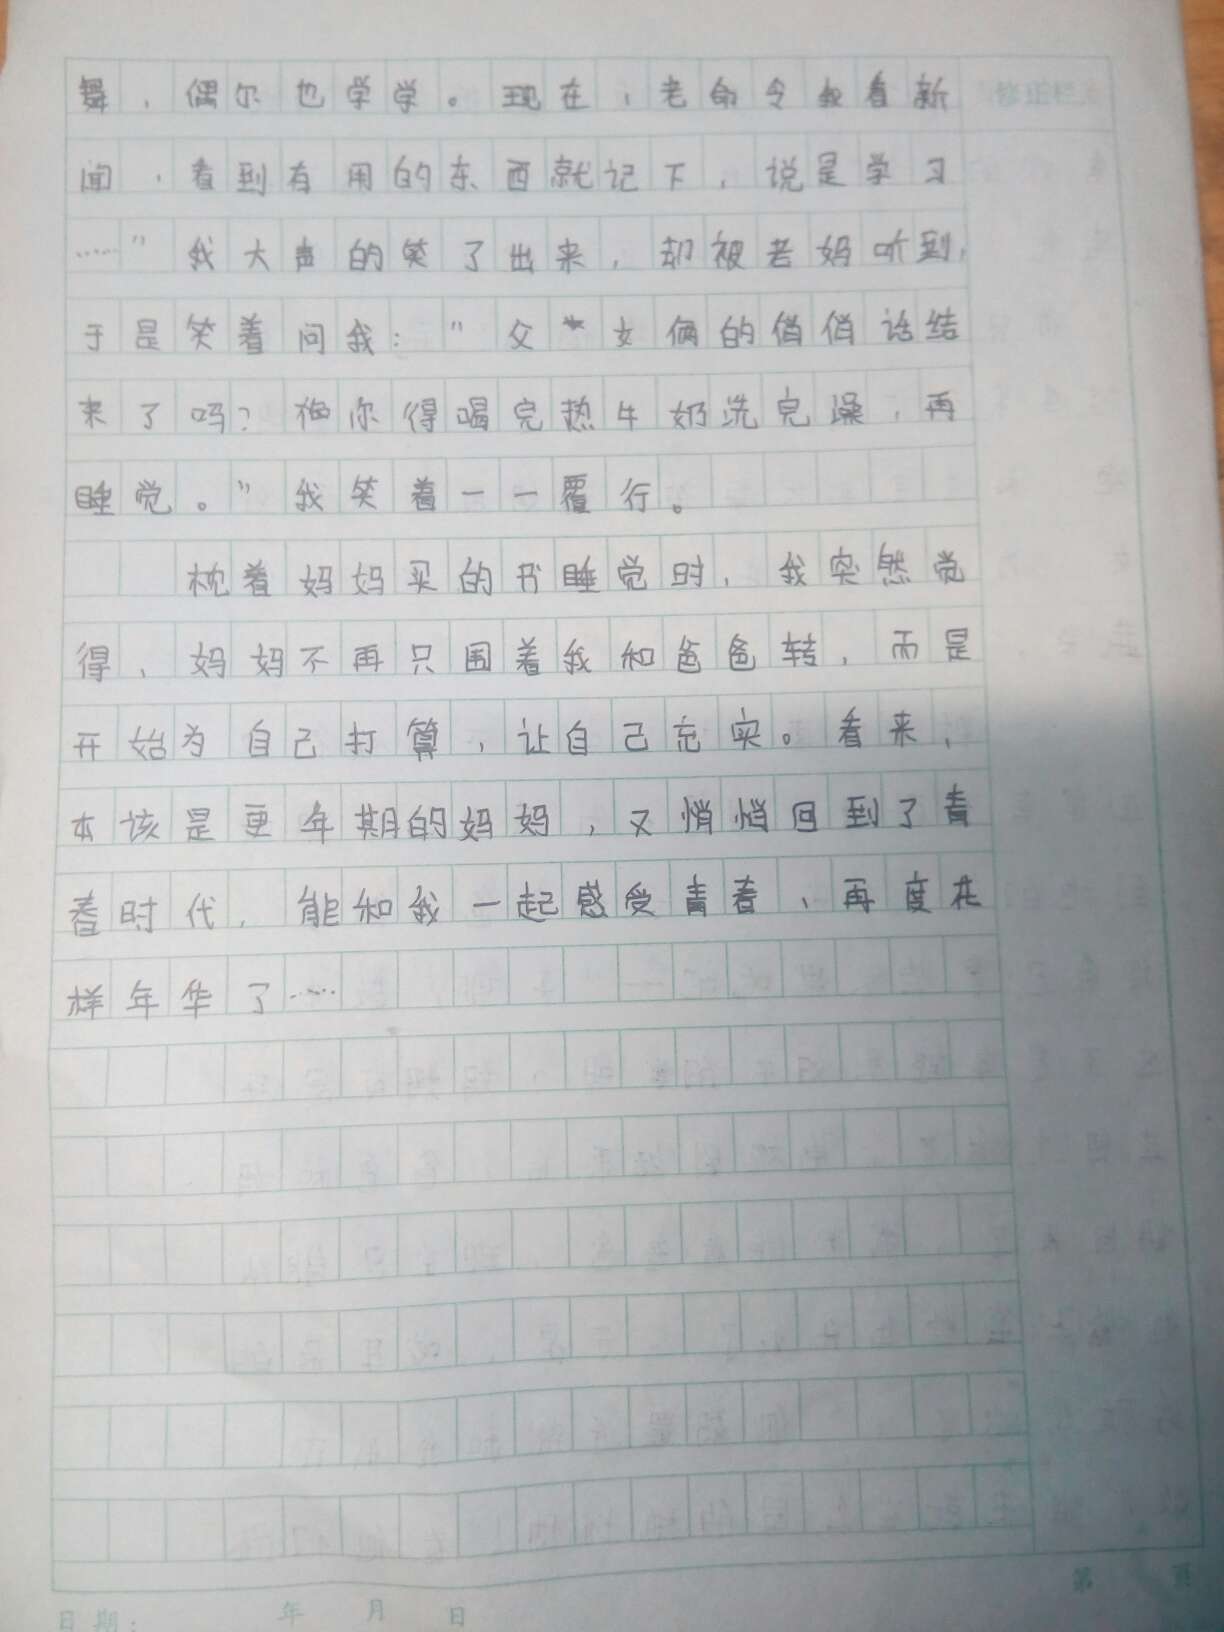 舞，偶尔也学学。现在，老命令我看新 修正栏
闻，看到有用的东西就记下，说是学习
……”我大声的笑了出来，却被老妈听到，
于是笑着问我：“父女俩的俏俏话结
来了吗？你得喝完热牛奶洗完澡，再
睡觉。”我笑着一一覆行。
枕着妈妈买的书睡觉时，我突然觉
得，妈妈不再只围着我和爸爸转，而是
开始为自己打算，让自己充实。看来，
本该是更年期的妈妈，又悄悄回到了青
春时代，能和我一起感受青春，再度花
样年华了……
第 页
日期： 年 月 日